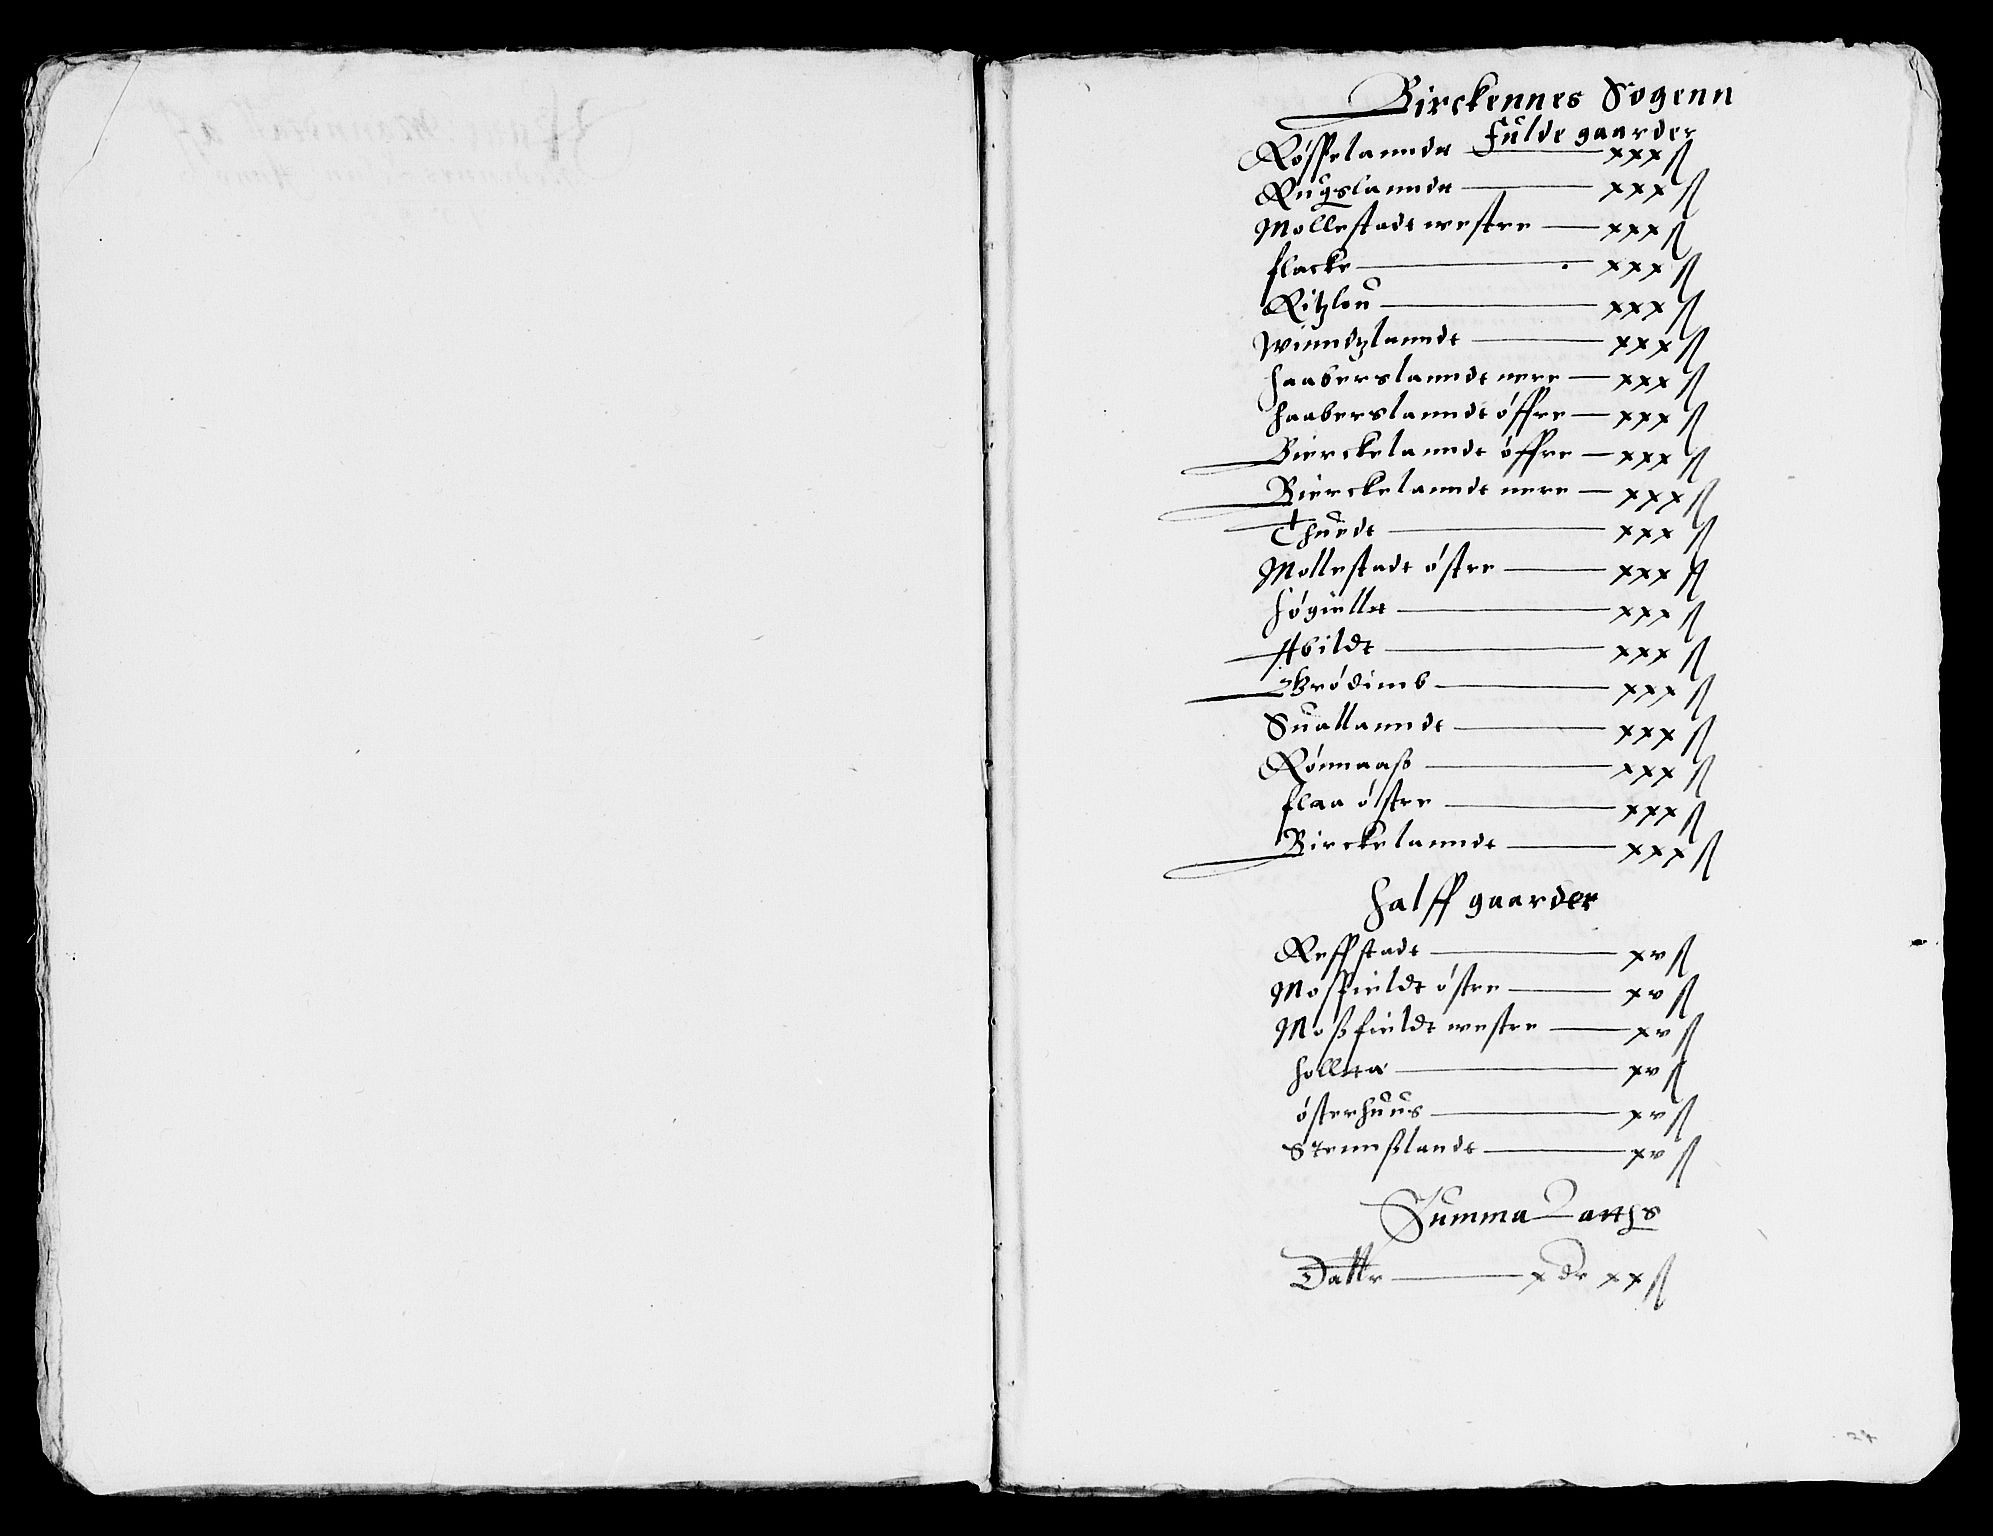 Birckennes Sogenn
Fulde gaarder
Røffuelanndt — xxx ß
Rugslanndt — xxx ß
Mollestadt westre — xxx ß
flacke — xxx ß
Ritzlou — xxx ß
Winndtzlanndt — xxx ß
haaberslanndt nere — xxx ß
haaberslanndt øffre — xxx ß
Bierckelanndt øffre — xxx ß
Bierckelanndt nere — xxx ß
Thuedt — xxx ß
Mollestadt østre — xxx ß
høgiellt — xxx ß
Abildt — xxx ß
Grødimb — xxx ß
Suallanndt — xxx ß
Rønnaaß — xxx ß
flaa østre — xxx ß
Birckelanndt — xxx ß
halff gaarder
Reffstadt — xv ß
Mosfieldt østre — xv ß
Moßfieldt westre — xv ß
holltta — xv ß
østerhuus — xv ß
Stennßlandt — xv ß
Summa Lattgs
Dallr — x dr xx ß
24